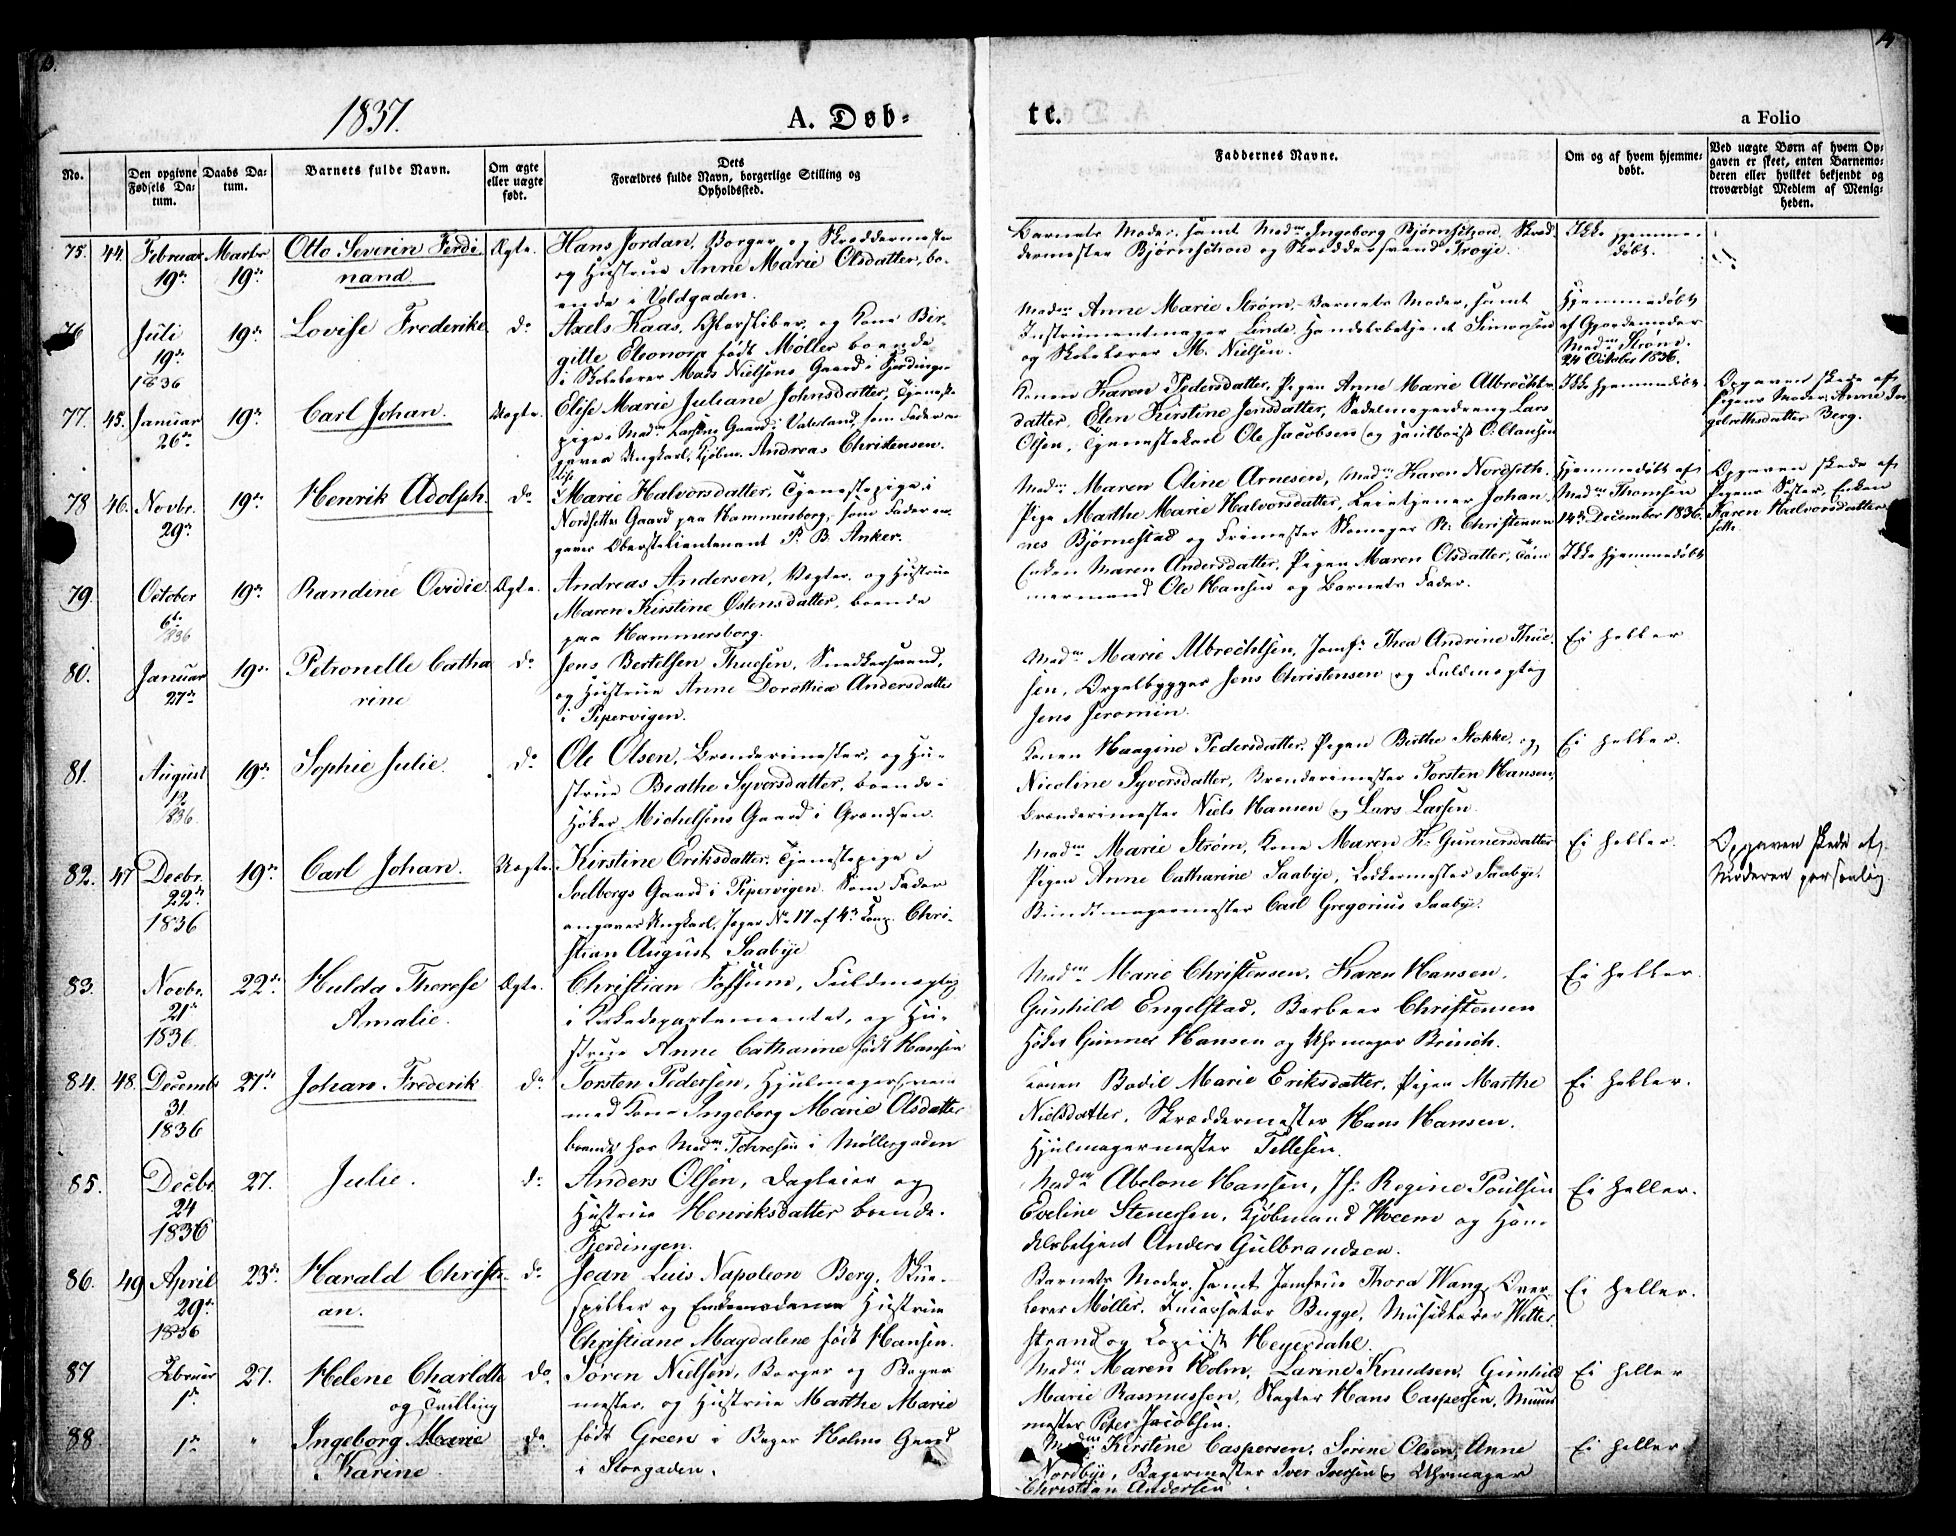 1837.
A. Døb-
te.
a Folio
No.
Den opgivne Fødsels Datum.
Daabs Datum.
Barnets fulde Navn.
Om ægte eller uægte født.
Dets Forældres fulde Navn, borgerlige Stilling og Opholdssted.
Faddernes Navne.
Om og af hvem hjemmedøbt.
Ved uægte Børn af hvem Opgaven er skeet, enten Barnemoderen eller hvilket bekjendt og troværdigt Medlem af Menigheden.
75. 44. Februar 19de Marts 19de Otto Severin Ferdinand. Ægte.
Hans Jordan, Borger og Skræddermester
og Hustrue Anne Marie Olsdatter, bo-
ende i Voldgaden.
Barnets Moder, samt Madme Ingeborg Bjørnsson, Skræd-
dermester Bjørnsson og Skræddersvend Troye.
Ikke hjemme-
døbt.
76 Juli 19de 1836 19de Lovise Frederike do
Axels Kaas, og Kone Bir-
gitte Eleonora født Møller boende
i Skolelærer Mads Nielsens Gaard i Fjerdingen
Madme Anne Marie Strøm, Barnets Moder, samt
Instrumentmager Linde, Handelsbetjent Simonsen
og Skolelærer M. Nielsen.
Hjemmedøbt
af Gjordemoder
Madme Strøm.
24 October 1836.
77. 45. Januar 26de 19de Carl Johan. Uægte.
Elise Marie Juliane Johnsdatter, Tjeneste-
pige i Madm Larsens Gaard i Vaterland, som Fader an-
gaves Ungkarl, Kjøbm. Andreas Christensen.
Konen Karen Pedersdatter, Pigen Anne Marie Albrechts-
datter, Elen Kirstine Jensdatter, Sadelmagerdreng Lars
Olsen, Tjenestekarl Ole Jacobsen og Hautboist O. Clausen
Ikke hjemmedøbt
Opgaven skede af
Pigens Moder Anne In-
gebrethsdatter Berg.
78 46. Novbr. 29de 19de Henrik Adolph. do
Lise
Marie Halvorsdatter, Tjenestepige i
Nordseths Gaard paa Hammersborg, som Fader an-
gaves Oberstlieutenant P. B. Anker.
Madme Maren Oline Arnesen, Madme Karen Nordseth.
Pige Marthe Marie Halvorsdatter, Leietjener Johan-
nes Bjørnestad og Frimester Skomager P. Christensen
Hjemmedøbt af
Madme Thomsen
14de December 1836.
Opgaven skede af
Pigens Søster, Enken
Karen Halvorsdatter
79. October 6te 1836 19de Randine Ovidie. Ægte.
Andreas Andersen, Vægter, og Hustrue
Maren Kirstine Østensdatter, boende
paa Hammersborg.
Enken Maren Andersdatter, Pigen Maren Olsdatter, Tøm-
mermand Ole Hansen og Barnets Fader.
Ikke hjemmedøbt
80. Januar 27de 19de Petronelle Catharine do
Jens Bertelsen Thuesen, Snedkersvend,
og Hustrue Anne Dorothea Andersdatter
i Pipervigen.
Madme Marie Albrechtsen, Jomf: Thea Andrine Thue-
sen, Orgelbygger Jens Christensen og Fuldmægtig
Jens Jeromin.
Ei heller
81. August 12 1836. 19de Sophie Julie. do
Ole Olsen, Brænderimester, og Hu-
strue Beathe Syversdatter, boende i
Høker Michelsens Gaard i Grændsen.
Konen Haagine Pedersdatter, Pigen Berthe Stokke, og
Nicoline Syversdatter, Brænderimester Torsten Hansen,
Brænderimester Niels Hansen og Lars Larsen.
Ei heller.
82. 47 Decbr. 22de 1836 19de Carl Johan. Uægte.
Kirstine Eriksdatter, Tjenestepige i
Sodbergs Gaard i Pipervigen. Som Fader
angaves Ungkarl, Jæger No 17 af 4de Comp. Chri-
stian August Saabye
Madme Marie Strøm, Kone Maren K. Gunnersdatter
Pigen Anne Catharine Saabye, Lakkermester Saabye,
Bundtmagermester Carl Gregorius Saabye.
Ei heller.
Opgaven skede af
Moderen personlig.
83. Novbr. 21de 1836. 22de Hulda Therese Amalie. Ægte.
Christian Fossum, Fuldmægtig
i Kirkedepartementet, og Hu-
strue Anne Catharine født Hansen
Madme Marie Christensen, Karen Hansen,
Gunhild Engelstad, Barbeer Christensen
Høker Gunner Hansen og Uhrmager Brinch.
Ei heller.
84. 48. Decembr 31. 1836 27de Johan Frederik do
Torsten Pedersen, Hjulmagersvend
med Kone Ingeborg Marie Olsdatter
boende hos Madme Tohresen i Møllergaden
Konen Bodil Marie Eriksdatter, Pigen Marthe
Nielsdatter, Skræddermester Hans Hansen.
Hjulmagermester Tellesen.
Ei heller.
85. Decbr. 24 1836 27. Julie. do
Anders Olsen, Dagleier og
Hustrue Henriksdatter boende
Fjerdingen.
Madme Abelone Hansen, Jf: Regine Poulsen
Eveline Stenersen, Kjøbmand Hveem og Han-
delsbetjent Anders Gulbrandsen.
Ei heller.
86. 49 April 29de 1836 23de Harald Christian. do
Jean Luis Napoleon Berg, Skue-
spiller og Hustrue
Christiane Magdalene født Hansen.
Barnets Moder, samt Jomfrue Thora Wang, Over-
lærer Møller, Bugge, Musiklærer Wetter-
strand og Copiist Heyerdahl.
Ei heller.
87 Februar 1de 27. Helene Charlotte do
og Tvilling
Søren Nielsen, Borger og Bager-
mester, og Hustrue Marthe Marie
født Green i Bager Holms Gaard
i Storgaden.
Madme Maren Holm, Larine Knudsen, Gunhild
Marie Rasmussen, Slagter Hans Caspersen, Muur-
mester Peter Jacobsen.
Ei heller
88. 1de " Ingeborg Marie Karine. do
Madme Kirstine Caspersen, Sørine Olsen, Anne
Nordbye, Bagermester Iver Iversen og Uhrmager
Christian Andersen.
Ei heller.